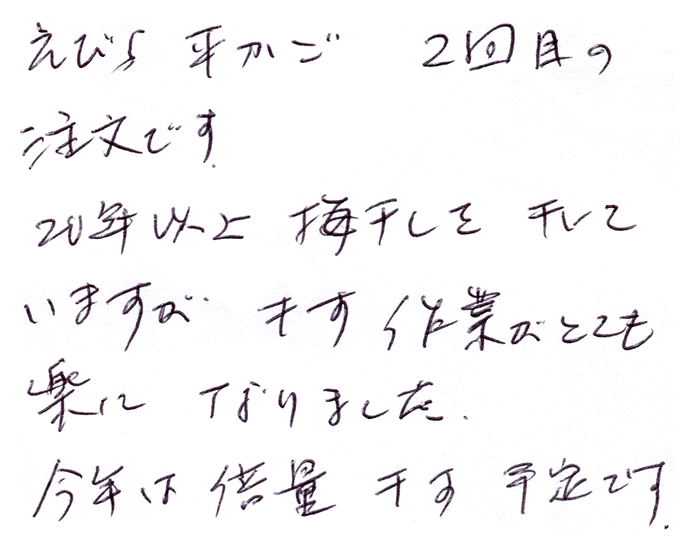 えびら 平かご 2回目の
ご注文です.
20年以上 梅干しを 干して
いますが 干す 作業がとても
楽に なりました.
今年は 倍量 干す 予定です.